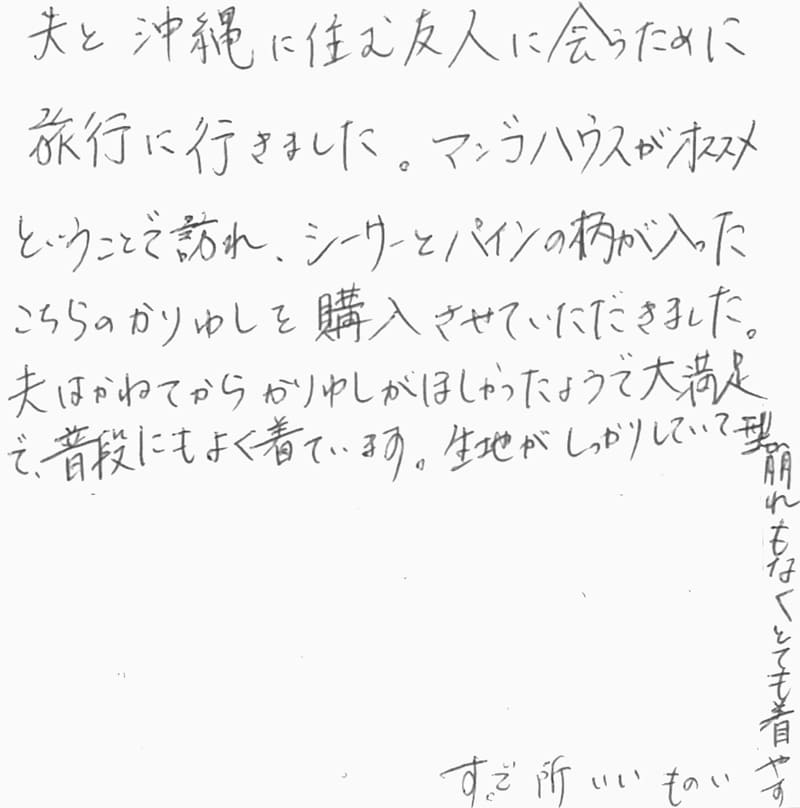 夫と沖縄に住む友人に会うために
旅行に行きました。マンゴハウスがオススメ
ということで訪れ、シーサーとパインの柄が入った
こちらのかりゆしを購入させていただきました。
夫はかねてからかりゆしがほしかったようで大満足
で、普段にもよく着ています。生地がしっかりしていて型
崩れもなくとても着やす
いのもいい所です。